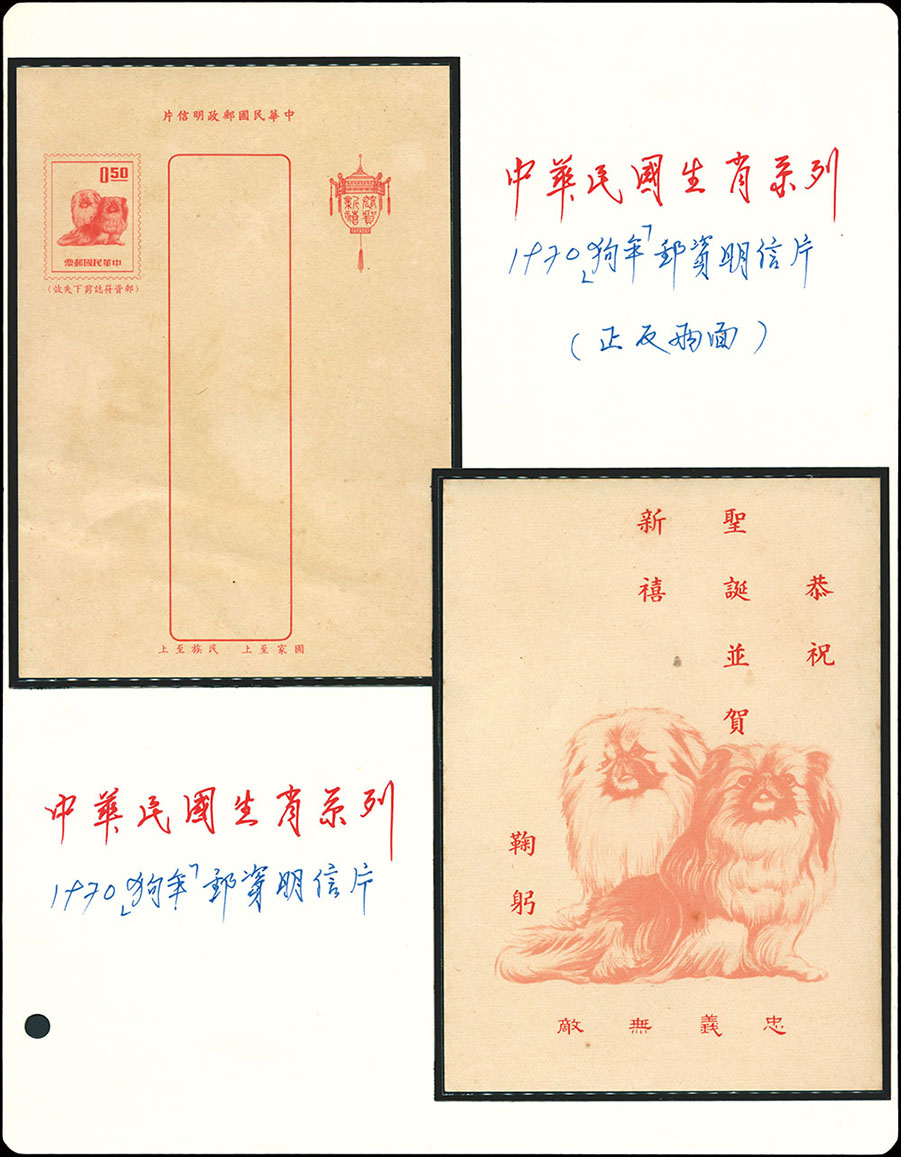 中華民國郵政明信片
0.50
中華民國郵票
(郵資符誌剪下失效)
恭賀
新禧
國家至上 民族至上
中華民國生肖系列
1970「狗年」郵資明信片
(正反兩面)
恭祝
聖誕並賀
新禧
鞠躬
忠義無敵
中華民國生肖系列
1970「狗年」郵資明信片